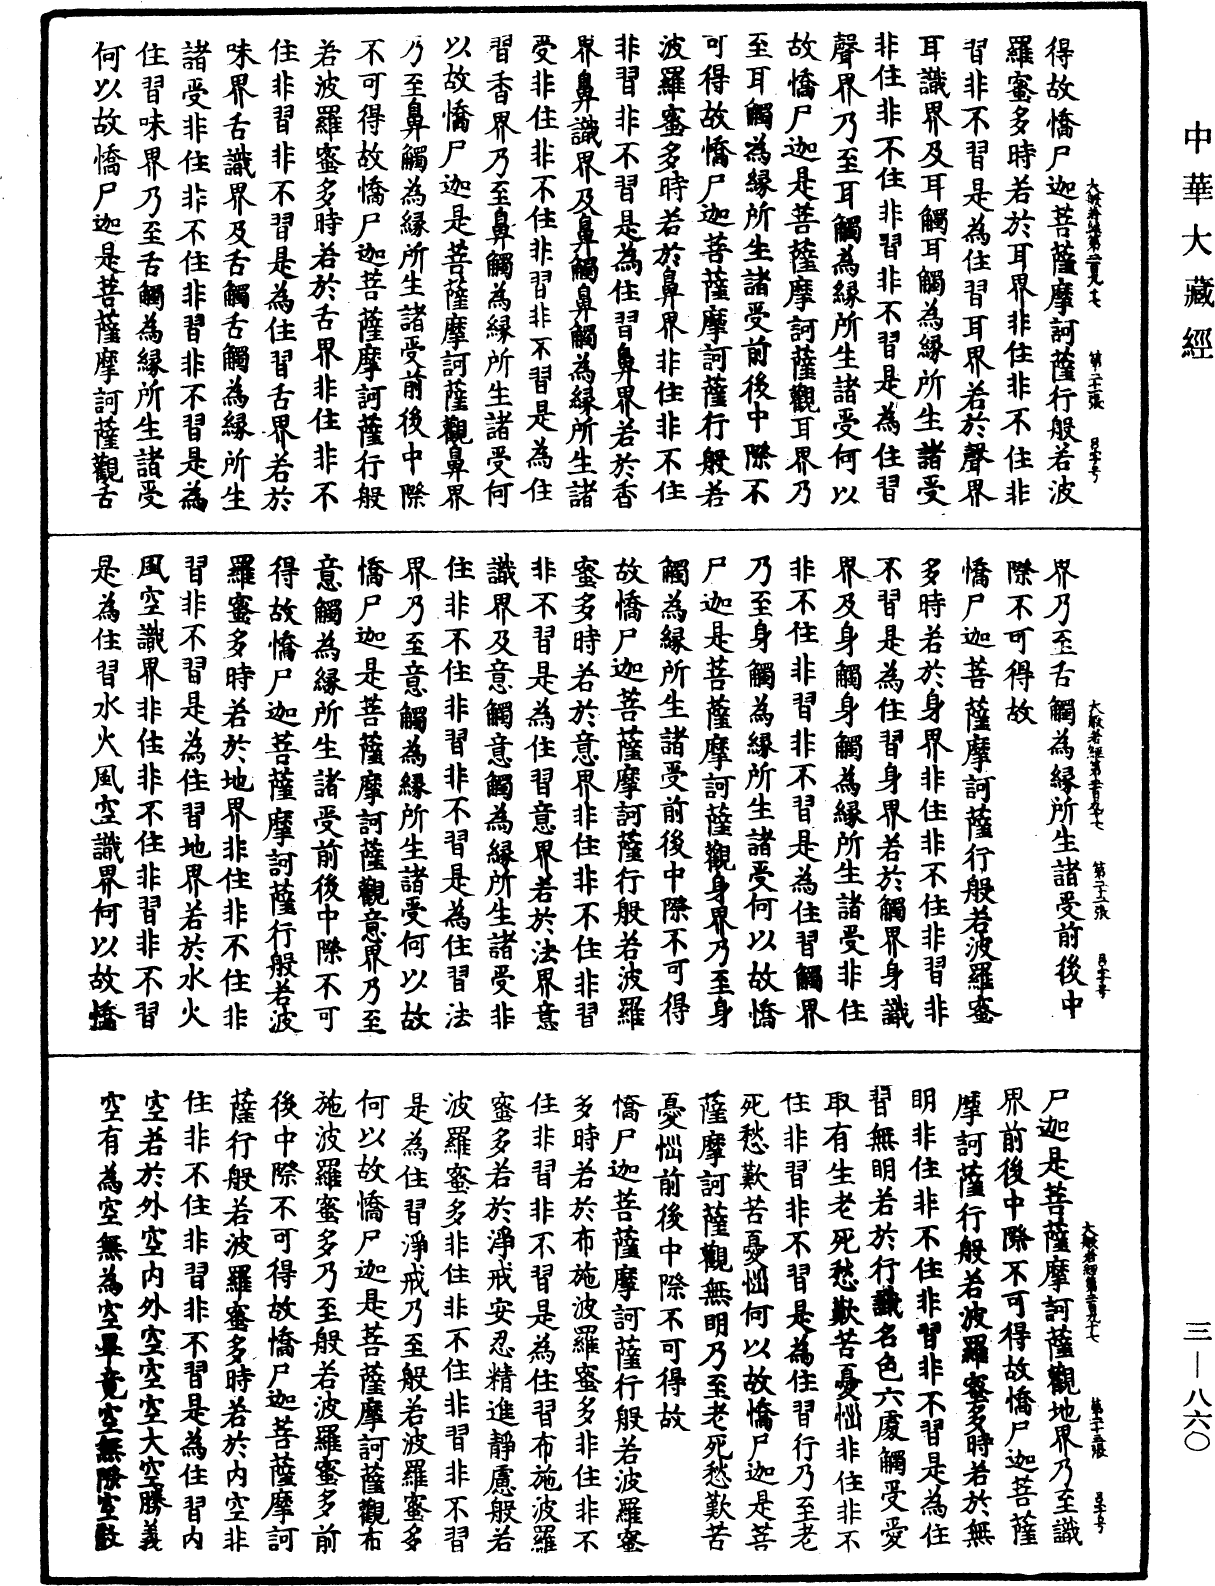 中華大藏經
三—八六〇
得故憍尸迦菩薩摩訶薩行般若波
羅蜜多時若於耳界非住非不住非
習非不習是為住習耳界若於聲界
耳識界及耳觸耳觸為緣所生諸受
非住非不住非習非不習是為住習
聲界乃至耳觸為緣所生諸受何以
故憍尸迦是菩薩摩訶薩觀耳界乃
至耳觸為緣所生諸受前後中際不
可得故憍尸迦菩薩摩訶薩行般若
波羅蜜多時若於鼻界非住非不住
非習非不習是為住習鼻界若於香
界鼻識界及鼻觸鼻觸為緣所生諸
受非住非不住非習非不習是為住
習香界乃至鼻觸為緣所生諸受何
以故憍尸迦是菩薩摩訶薩觀鼻界
乃至鼻觸為緣所生諸受前後中際
不可得故憍尸迦菩薩摩訶薩行般
若波羅蜜多時若於舌界非住非不
住非習非不習是為住習舌界若於
味界舌識界及舌觸舌觸為緣所生
諸受非住非不住非習非不習是為
住習味界乃至舌觸為緣所生諸受
何以故憍尸迦是菩薩摩訶薩觀舌
大般若經第二百九十七 第二十一張
界乃至舌觸為緣所生諸受前後中
際不可得故
憍尸迦菩薩摩訶薩行般若波羅蜜
多時若於身界非住非不住非習非
不習是為住習身界若於觸界身識
界及身觸身觸為緣所生諸受非住
非不住非習非不習是為住習觸界
乃至身觸為緣所生諸受何以故憍
尸迦是菩薩摩訶薩觀身界乃至身
觸為緣所生諸受前後中際不可得
故憍尸迦菩薩摩訶薩行般若波羅
蜜多時若於意界非住非不住非習
非不習是為住習意界若於法界意
識界及意觸意觸為緣所生諸受非
住非不住非習非不習是為住習法
界乃至意觸為緣所生諸受何以故
憍尸迦是菩薩摩訶薩觀意界乃至
意觸為緣所生諸受前後中際不可
得故憍尸迦菩薩摩訶薩行般若波
羅蜜多時若於地界非住非不住非
習非不習是為住習地界若於水火
風空識界非住非不住非習非不習
是為住習水火風空識界何以故憍
大般若經第二百九十七 第二十二張
尸迦是菩薩摩訶薩觀地界乃至識
界前後中際不可得故憍尸迦菩薩
摩訶薩行般若波羅蜜多時若於無
明非住非不住非習非不習是為住
習無明若於行識名色六處觸受愛
取有生老死愁歎苦憂惱非住非不
住非習非不習是為住習行乃至老
死愁歎苦憂惱何以故憍尸迦是菩
薩摩訶薩觀無明乃至老死愁歎苦
憂惱前後中際不可得故
憍尸迦菩薩摩訶薩行般若波羅蜜
多時若於布施波羅蜜多非住非不
住非習非不習是為住習布施波羅
蜜多若於淨戒安忍精進靜慮般若
波羅蜜多非住非不住非習非不習
是為住習淨戒乃至般若波羅蜜多
何以故憍尸迦是菩薩摩訶薩觀布
施波羅蜜多乃至般若波羅蜜多前
後中際不可得故憍尸迦菩薩摩訶
薩行般若波羅蜜多時若於內空非
住非不住非習非不習是為住習內
空若於外空內外空空空大空勝義
空有為空無為空畢竟空無際空散
大般若經第二百九十七 第二十三張